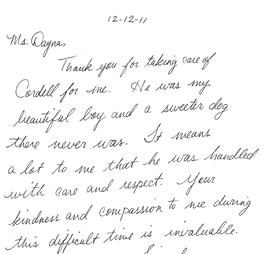 12-12-11
Ms. Dayna,
Thank you for taking care of
Cordell for me. He was my
beautiful boy and a sweeter dog
there never was. It means
a lot to me that he was handled
with care and respect. Your
kindness and compassion to me during
this difficult time is invaluable.